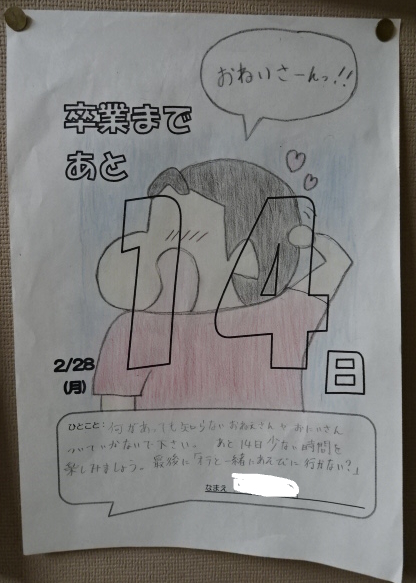 おねいさーんっ!!
卒業まで
あと
14
日
2/28
(月)
ひとこと: 何があっても知らないおねえさんやおにいさん
ついていかないで下さい。 あと14日少ない時間を
楽しみましょう。最後に「行と一緒にあそびに行かない?」
なまえ